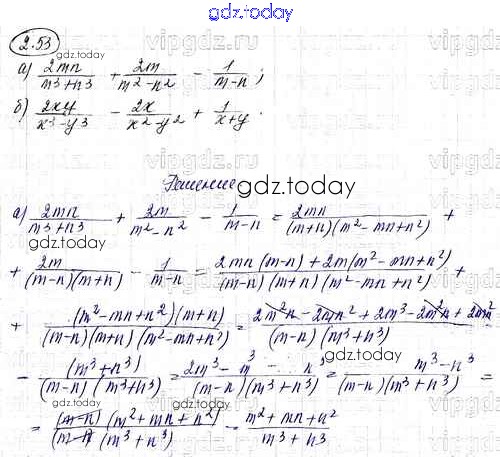 gdz.today
2.53
gdz.today
vipgdz.ru
а) 2mn/(m³+n³) + 2m/(m²-n²) - 1/(m-n);
б) 2xy/(x³-y³) - 2x/(x²-y²) + 1/(x+y).
gdz.today
Решение
gdz.today
а) 2mn/(m³+n³) + 2m/(m²-n²) - 1/(m-n) = 2mn/((m+n)(m²-mn+n²)) +
gdz.today
+ 2m/((m-n)(m+n)) - 1/(m-n) = (2mn(m-n)+2m(m²-mn+n²))/((m-n)(m+n)(m²-mn+n²)) +
+ (m²-mn+n²)(m+n)/((m-n)(m+n)(m²-mn+n²)) = (2m²n-2mn²+2m³-2m²n+2mn²)/((m-n)(m³+n³)) -
- (m³+n³)/((m-n)(m³+n³)) = (2m³-m³-n³)/((m-n)(m³+n³)) = (m³-n³)/((m-n)(m³+n³)) =
gdz.today
= (m-n)(m²+mn+n²)/((m-n)(m³+n³)) - (m²+mn+n²)/(m³+n³)
gdz.today